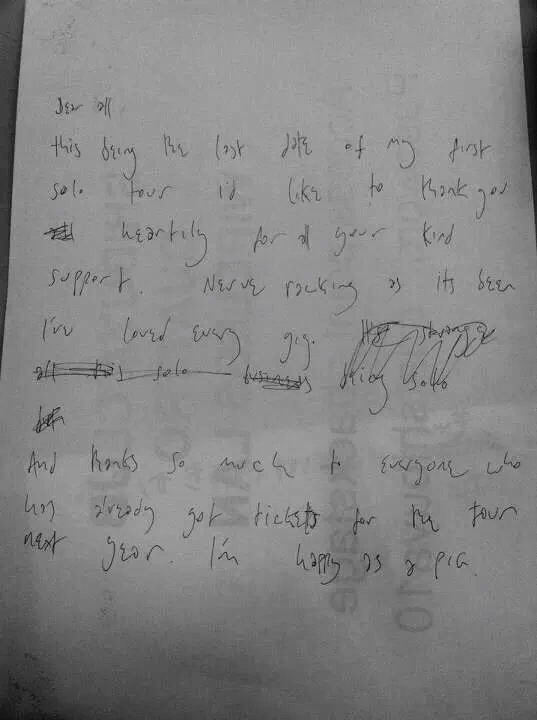 Dear all
this being the last date of my first
solo tour i'd like to thank you
all heartily for all your kind
support. Nerve racking as its been
I've loved every gig. It's strange
all this solo business being solo
And thanks so much to everyone who
has already got tickets for the tour
next year. I'm happy as a pig.